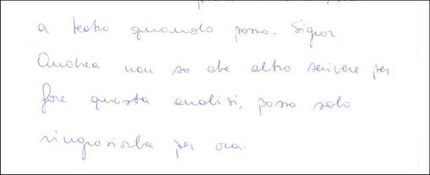 a teatro quando posso. Signor
Andrea non so che altro scrivere per
fare questa analisi, posso solo
ringraziarla per ora